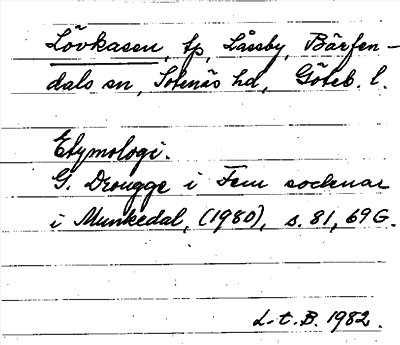 Lövkasen, tp, Låssby, Bärfen-
dals sn, Sotenäs hd, Göteb. l.
Etymologi.
G. Drougge i Fem socknar
i Munkedal, (1980), s. 81, 69 G.
L. t. B. 1982.